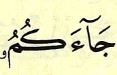 جَآءَكُمُۥ